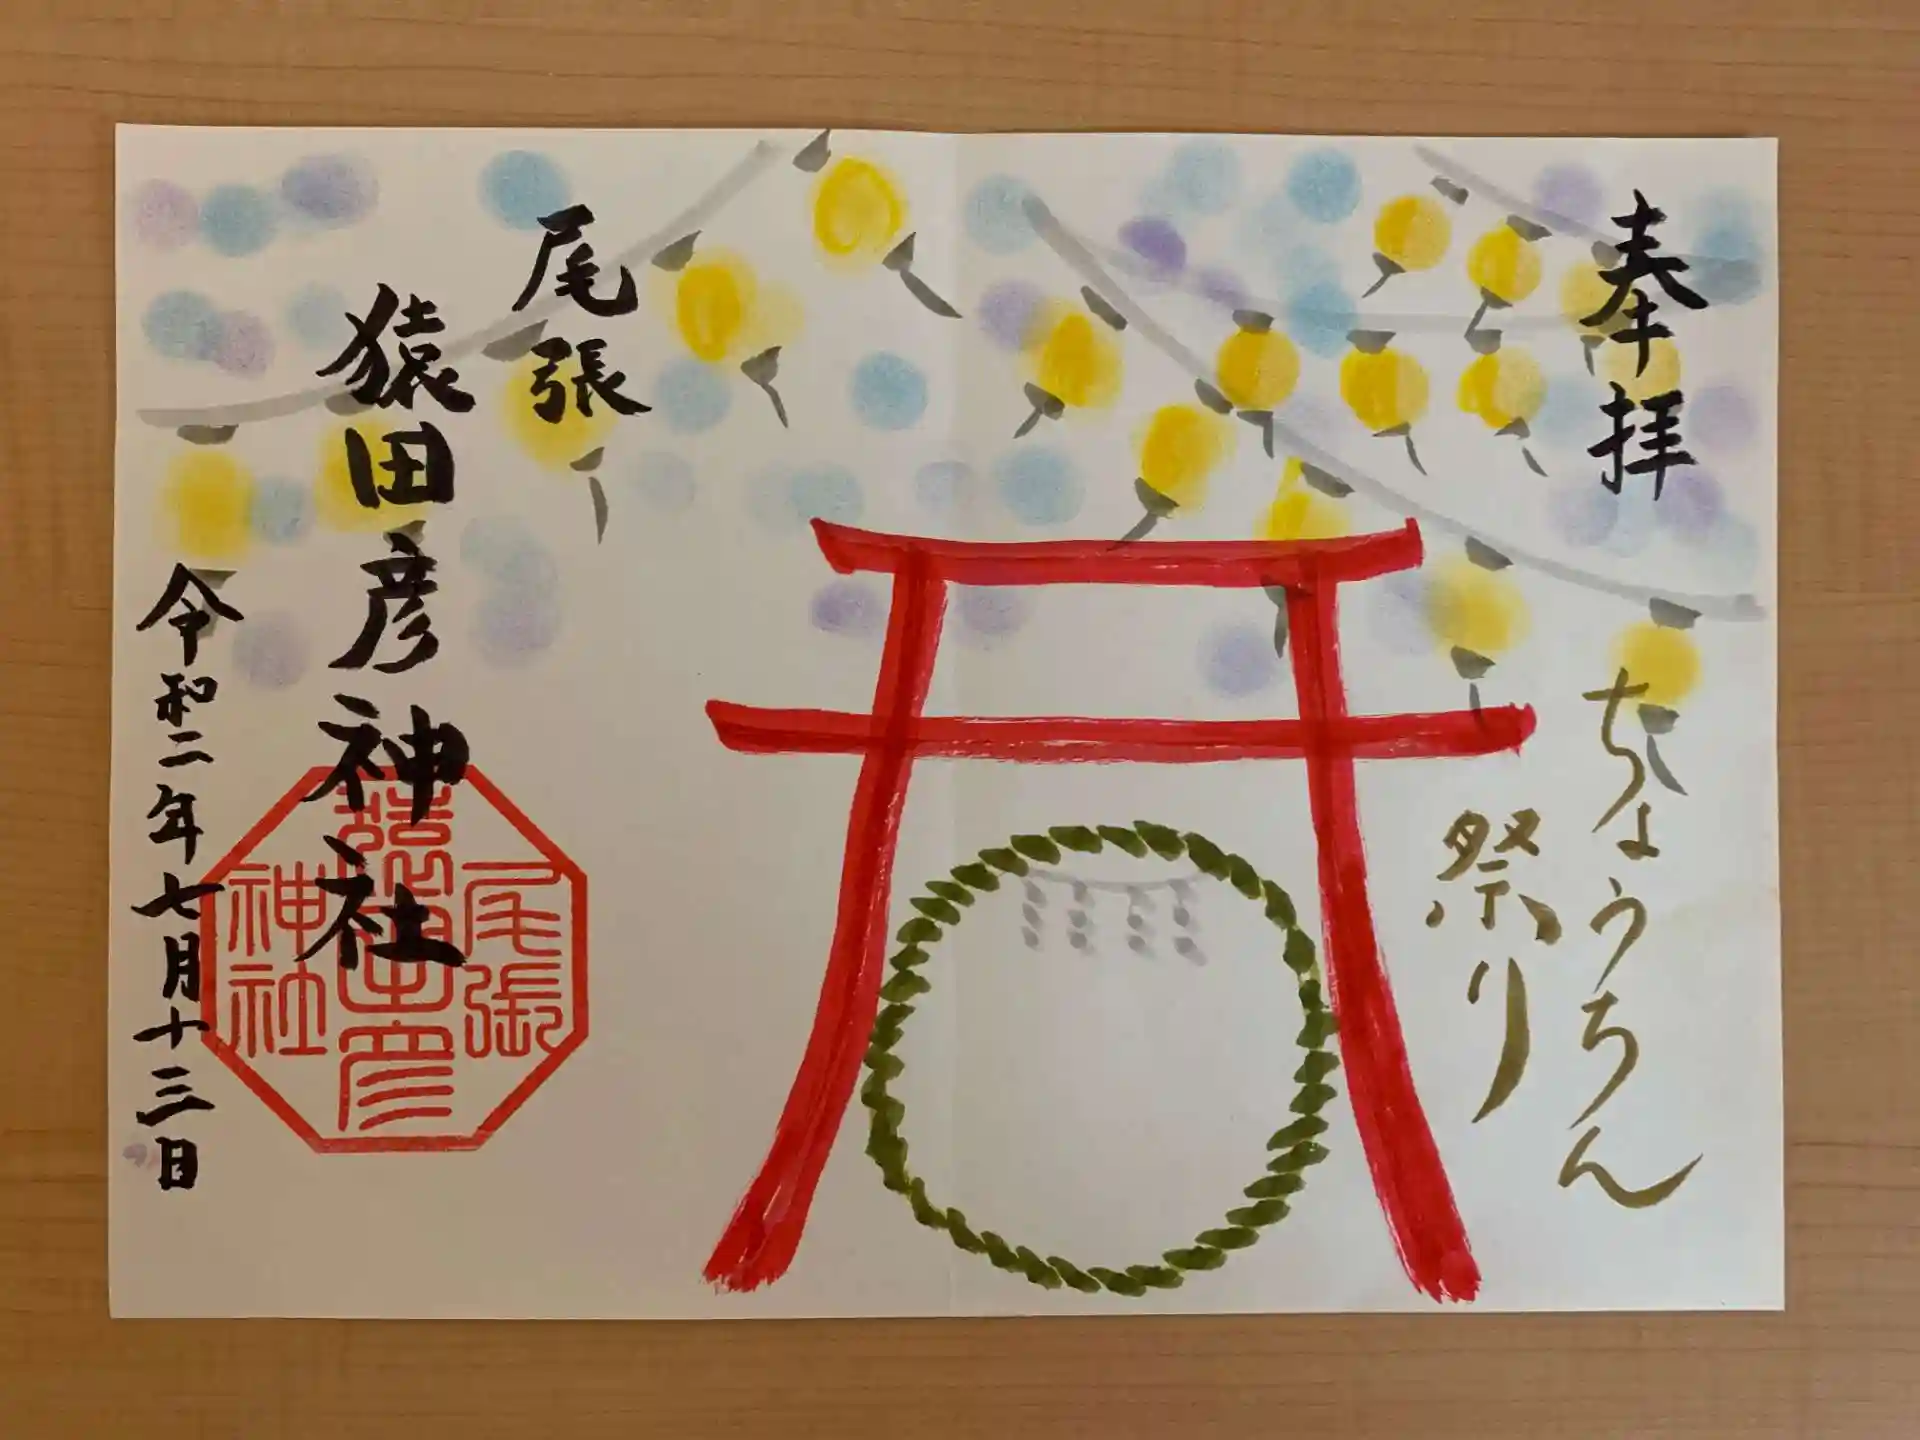 奉拝
ちょうちん
祭り
尾張
猿田彦神社
令和二年七月十三日
尾張
猿田彦
神社